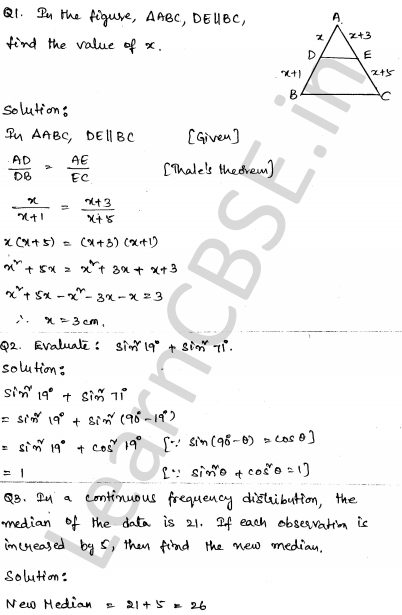 Q1. In the figure, ΔABC, DE||BC,
find the value of x.
A
x
x+3
D
E
x+1
x+5
B
C
Solution:
In ΔABC, DE||BC [Given]
AD/DB = AE/EC [Thale's theorem]
x/x+1 = x+3/x+5
x(x+5) = (x+3)(x+1)
x² + 5x = x² + 3x + x+3
x² + 5x - x² - 3x - x = 3
∴ x = 3 cm.
Q2. Evaluate: sin² 19° + sin² 71°.
Solution:
sin² 19° + sin² 71°
= sin² 19° + sin² (90° - 19°)
= sin² 19° + cos² 19° [∵ sin(90° - θ) = cos θ]
= 1 [∵ sin²θ + cos²θ = 1]
Q3. In a continuous frequency distribution, the
median of the data is 21. If each observation is
increased by 5, then find the new median.
Solution:
New Median = 21 + 5 = 26
LearnCBSE.in